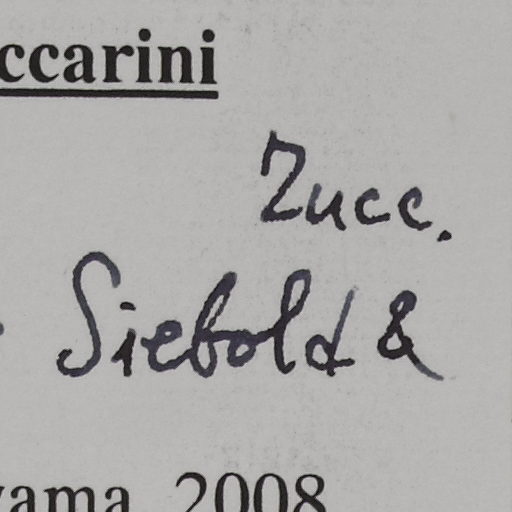 ccarini
Zucc.
Siebold &
yama, 2008